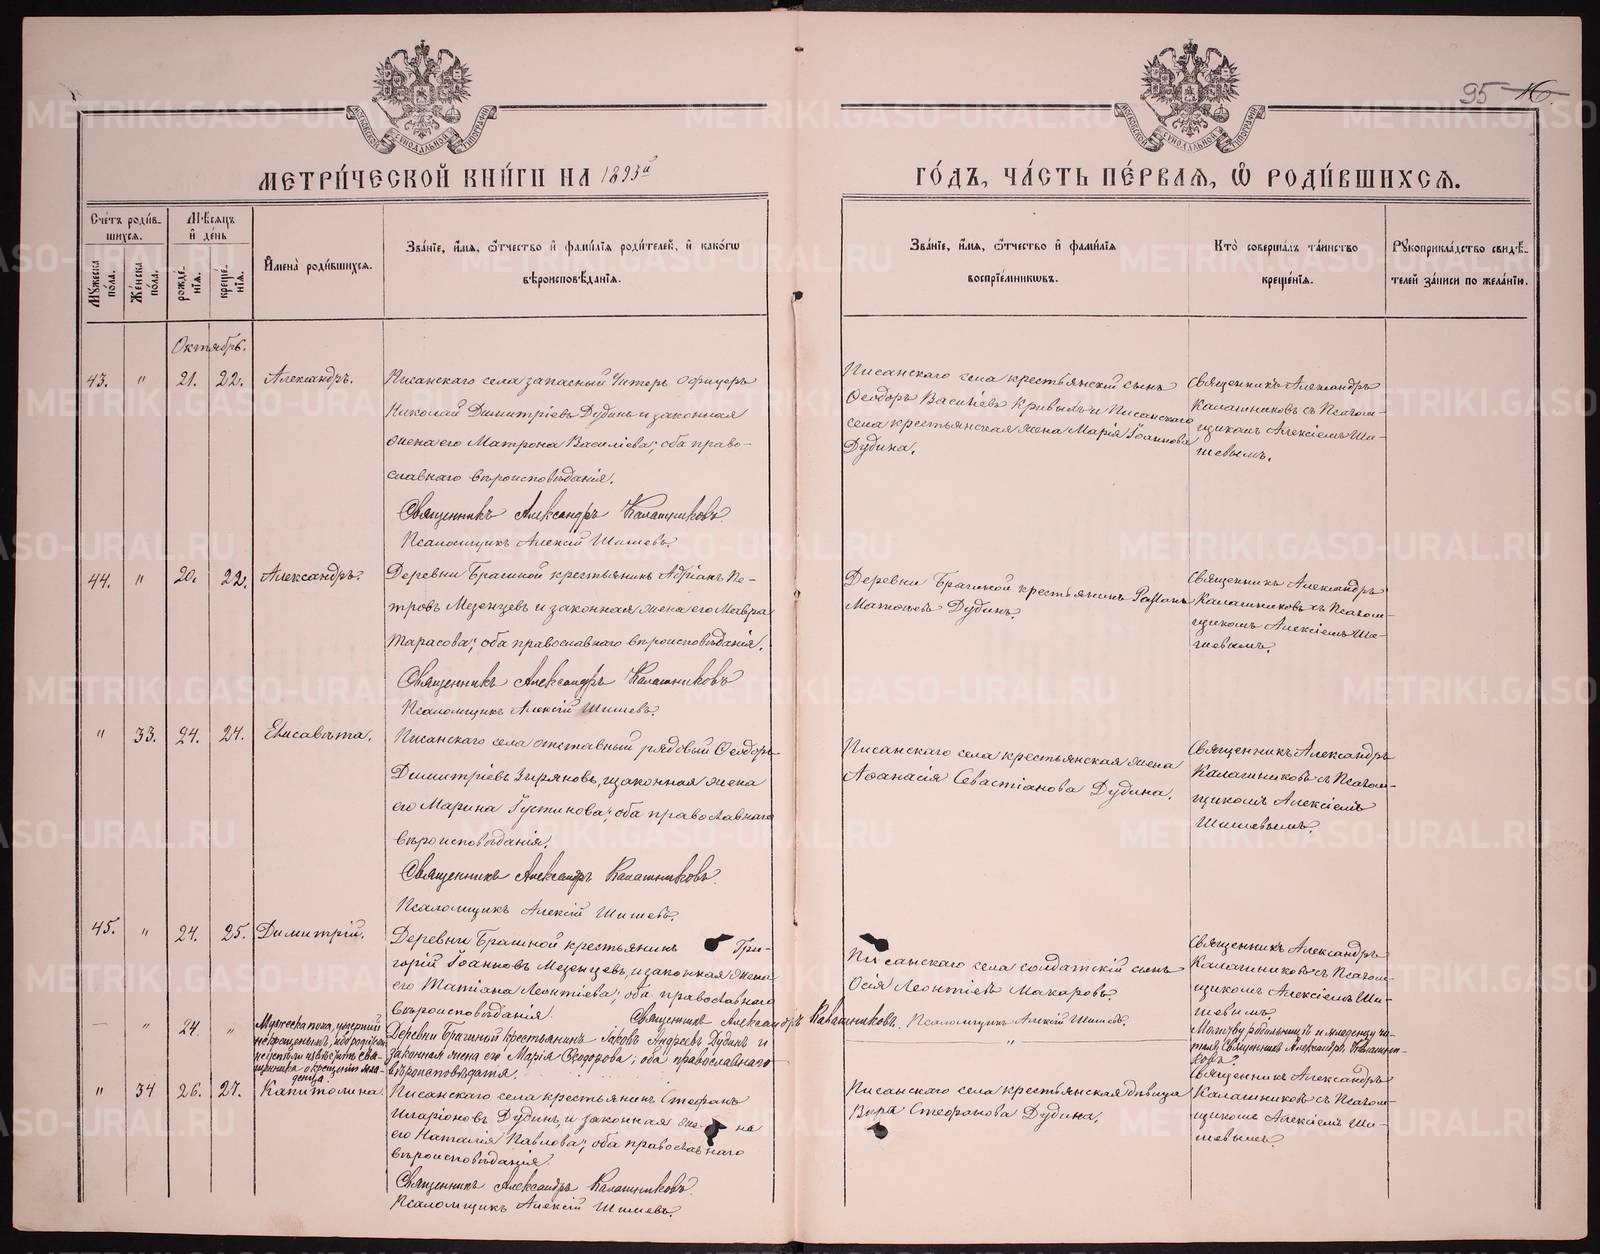 95 16
МОСКОВСКОЙ СѴНОДАЛЬНОЙ ТИПОГРАФІИ
МОСКОВСКОЙ СѴНОДАЛЬНОЙ ТИПОГРАФІИ
МЕТРИ́ЧЕСКОЙ КНИ́ГИ НА 1893й
ГО́ДЪ, ЧА́СТЬ ПЕ́РВАЯ, Ѽ РОДИ́ВШИХСѦ.
Сче́тъ роди́в-
шихсѧ.
Мꙋжеска по́ла.
Же́нска по́ла.
Мѣ́сѧцъ и҆ де́нь
рожде́нїѧ.
креще́нїѧ.
И҆мена̀ роди́вшихсѧ.
Зва́нїе, и҆́мѧ, ѻ҆́тчество и҆ фами́лїѧ роди́телей, и҆ како́гѡ
вѣроисповѣ́данїѧ.
Зва́нїе, и҆́мѧ, ѻ҆́тчество и҆ фами́лїѧ
воспрїе́мникѡвъ.
Кто̀ соверша́лъ та́инство
креще́нїѧ.
Рꙋкоприкла́дство свидѣ́-
телей за́писи по жела́нїю.
Октябрь.
43. " 21. 22. Александръ.
Писанскаго села запасный Унтеръ офицеръ
Николай Димитріевъ Дудинъ и законная
жена его Матрона Василіева; оба право-
славнаго вѣроисповѣданія.
Священникъ Александръ Калашниковъ
Псаломщикъ Алексій Шишевъ.
Писанскаго села крестьянскій сынъ
Ѳеодоръ Васильевъ Кривыхъ и Писанскаго
села крестьянская жена Марія Іоаннова
Дудина.
Священникъ Александръ
Калашниковъ съ Псалом-
щикомъ Алексіемъ Ши-
шевымъ.
44. " 20. 22. Александръ.
Деревни Брагиной крестьянинъ Адріанъ Пе-
тровъ Мезенцевъ и законная жена его Мавра
Тарасова; оба православнаго вѣроисповѣданія.
Священникъ Александръ Калашниковъ
Псаломщикъ Алексій Шишевъ.
Деревни Брагиной крестьянинъ
Дудинъ.
Священникъ Александръ
Калашниковъ съ Псалом-
щикомъ Алексіемъ Ши-
шевымъ.
" 33. 24. 24. Елисавѣта.
Писанскаго села отставный рядовый Ѳеодоръ
Димитріевъ Зыряновъ, и законная жена
его Марина Густинова; оба православнаго
вѣроисповѣданія.
Священникъ Александръ Калашниковъ.
Псаломщикъ Алексій Шишевъ.
Писанскаго села крестьянская жена
Аѳанасія Севастіанова Дудина.
Священникъ Александръ
Калашниковъ съ Псалом-
щикомъ Алексіемъ
Шишевымъ.
45. " 24. 25. Димитрій.
Деревни Брагиной крестьянинъ Гри-
горій Іоанновъ Мезенцевъ, и законная жена
его Татіана Леонтіева; оба православнаго
вѣроисповѣданія. Священникъ Александръ Калашниковъ. Псаломщикъ Алексій Шишевъ.
Писанскаго села солдатскій сынъ
Осія Леонтіевъ Макаровъ.
Священникъ Александръ
Калашниковъ съ Псалом-
щикомъ Алексіемъ Ши-
шевымъ.
— " 24. "
Мужеска пола, умершій
некрещенымъ, ибо родители
не успѣли извѣстить свя-
щенника о крещеніи мла-
денца.
Деревни Брагиной крестьянинъ Іаковъ Андреевъ Дудинъ и
законная жена его Марія Ѳеодорова; оба православнаго
вѣроисповѣданія.
"
Молитву родильницѣ и младенцу чи-
талъ Священникъ Александръ Калашни-
ковъ.
" 34 26. 27. Капитолина.
Писанскаго села крестьянинъ Стефанъ
Иларіоновъ Дудинъ, и законная жена
его Наталія Павлова; оба православнаго
вѣроисповѣданія.
Священникъ Александръ Калашниковъ.
Псаломщикъ Алексій Шишевъ.
Писанскаго села крестьянская дѣвица
Вѣра Стефанова Дудина.
Священникъ Александръ
Калашниковъ съ Псалом-
щикомъ Алексіемъ Ши-
шевымъ.
METRIKI.GASO-URAL.RU